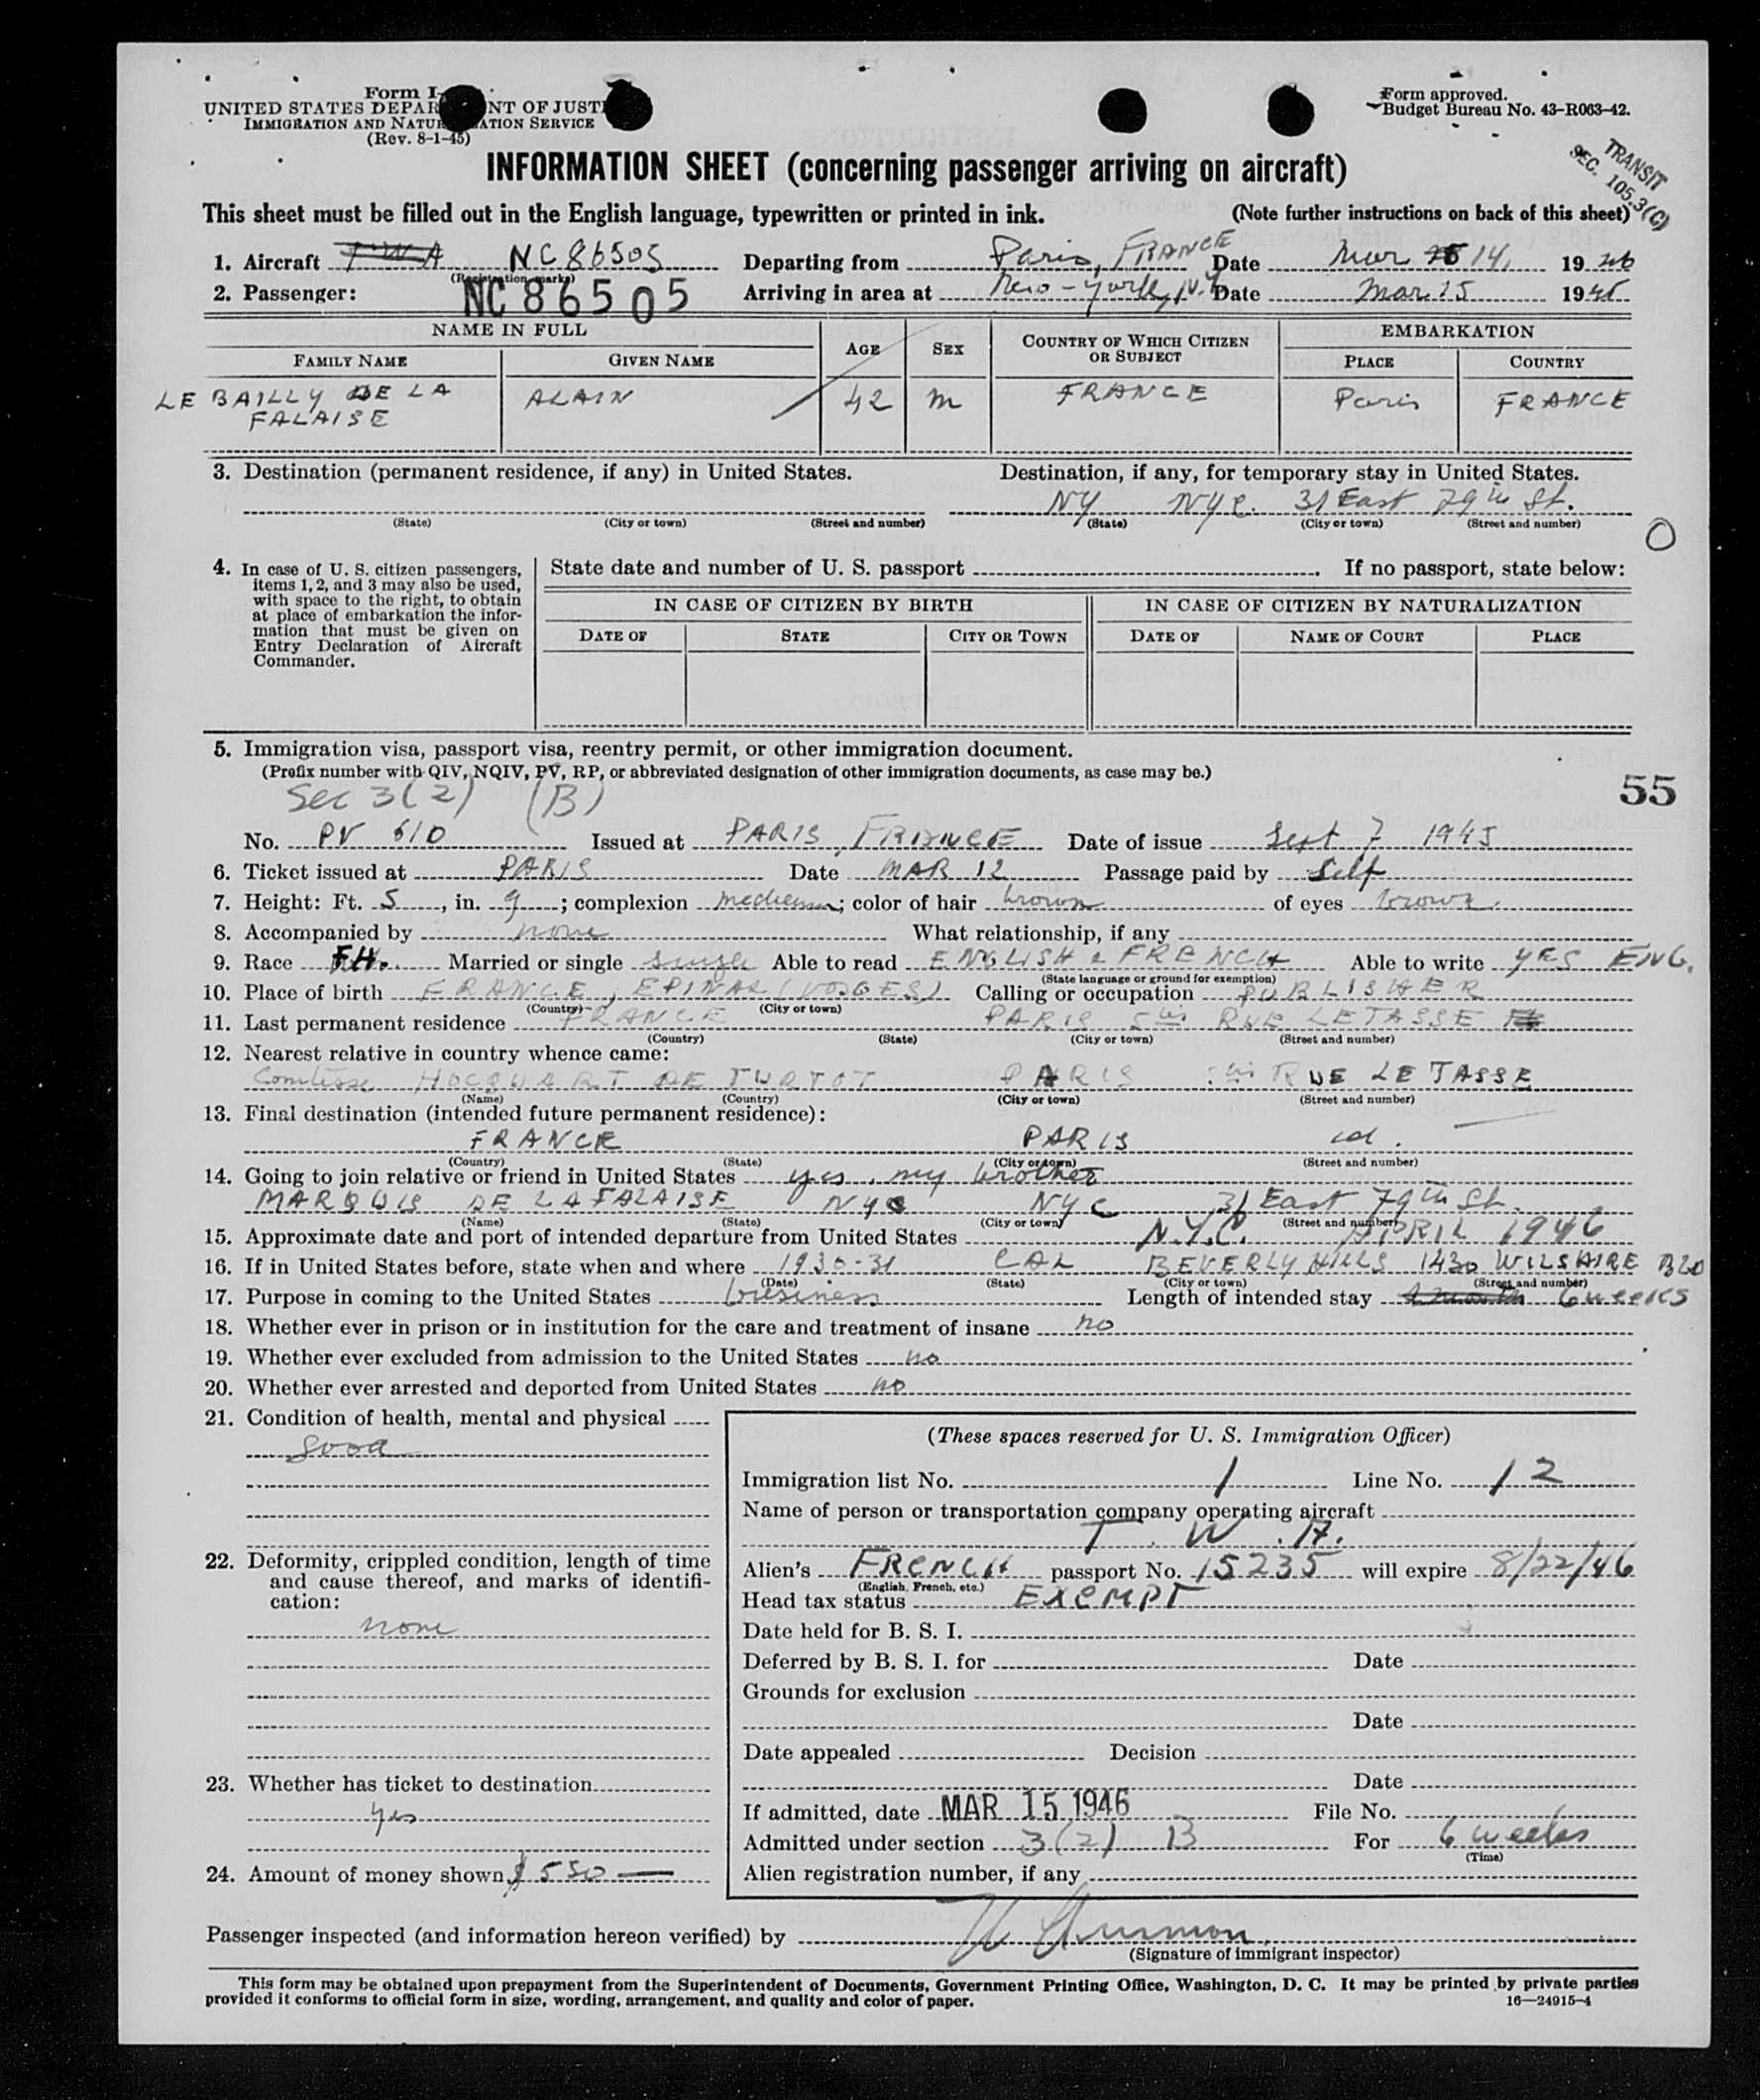 Form I-
UNITED STATES DEPAR NT OF JUSTI
IMMIGRATION AND NATUR ATION SERVICE
(Rev. 8-1-45)
Form approved.
Budget Bureau No. 43-R063-42.
TRANSIT
SEC. 105.3(C)
INFORMATION SHEET (concerning passenger arriving on aircraft)
This sheet must be filled out in the English language, typewritten or printed in ink. (Note further instructions on back of this sheet)
1. Aircraft TWA NC86505 Departing from Paris, FRANCE Date Mar 14, 1946
(Registration marks)
2. Passenger: NC86505 Arriving in area at New-York, N.Y Date Mar 15 1946
NAME IN FULL AGE SEX COUNTRY OF WHICH CITIZEN OR SUBJECT EMBARKATION
FAMILY NAME GIVEN NAME PLACE COUNTRY
LE BAILLY DE LA FALAISE ALAIN 42 M FRANCE Paris FRANCE
3. Destination (permanent residence, if any) in United States. Destination, if any, for temporary stay in United States.
NY NYC. 31 East 79th St.
(State) (City or town) (Street and number) (State) (City or town) (Street and number)
O
4. In case of U. S. citizen passengers, items 1, 2, and 3 may also be used, with space to the right, to obtain at place of embarkation the information that must be given on Entry Declaration of Aircraft Commander.
State date and number of U. S. passport . If no passport, state below:
IN CASE OF CITIZEN BY BIRTH IN CASE OF CITIZEN BY NATURALIZATION
DATE OF STATE CITY OR TOWN DATE OF NAME OF COURT PLACE
5. Immigration visa, passport visa, reentry permit, or other immigration document.
(Prefix number with QIV, NQIV, PV, RP, or abbreviated designation of other immigration documents, as case may be.)
55
Sec 3(2) (B)
No. PV 610 Issued at PARIS, FRANCE Date of issue Sept 7 1945
6. Ticket issued at PARIS Date MAR 12 Passage paid by Self
7. Height: Ft. 5, in. 9; complexion medium; color of hair brown of eyes brown.
8. Accompanied by none What relationship, if any
9. Race FH. Married or single single Able to read ENGLISH & FRENCH Able to write YES ENG.
(State language or ground for exemption)
10. Place of birth FRANCE, EPINAL (VOSGES) Calling or occupation PUBLISHER
(Country) (City or town)
11. Last permanent residence FRANCE PARIS 5bis RUE LETASSE
(Country) (State) (City or town) (Street and number)
12. Nearest relative in country whence came:
Comtesse HOCQUART DE TURTOT PARIS 5bis RUE LE TASSE
(Name) (Country) (City or town) (Street and number)
13. Final destination (intended future permanent residence):
FRANCE PARIS id.
(Country) (State) (City or town) (Street and number)
14. Going to join relative or friend in United States yes, my brother
MARQUIS DE LA FALAISE NYC NYC 31 East 79th St.
(Name) (State) (City or town) (Street and number)
15. Approximate date and port of intended departure from United States N.Y.C. APRIL 1946
16. If in United States before, state when and where 1930-31 CAL BEVERLY HILLS 1430 WILSHIRE BLD
(Date) (State) (City or town) (Street and number)
17. Purpose in coming to the United States business Length of intended stay 6 weeks
18. Whether ever in prison or in institution for the care and treatment of insane no
19. Whether ever excluded from admission to the United States no
20. Whether ever arrested and deported from United States no
21. Condition of health, mental and physical
good
22. Deformity, crippled condition, length of time and cause thereof, and marks of identification:
none
23. Whether has ticket to destination
yes
24. Amount of money shown $ 550 —
(These spaces reserved for U. S. Immigration Officer)
Immigration list No. 1 Line No. 12
Name of person or transportation company operating aircraft
T. W. A.
Alien's FRENCH passport No. 15235 will expire 8/22/46
(English, French, etc.)
Head tax status EXEMPT
Date held for B. S. I.
Deferred by B. S. I. for Date
Grounds for exclusion
Date
Date appealed Decision
Date
If admitted, date MAR 15 1946 File No.
Admitted under section 3(2) B For 6 weeks
(Time)
Alien registration number, if any
Passenger inspected (and information hereon verified) by
(Signature of immigrant inspector)
This form may be obtained upon prepayment from the Superintendent of Documents, Government Printing Office, Washington, D. C. It may be printed by private parties
provided it conforms to official form in size, wording, arrangement, and quality and color of paper. 16—24915-4